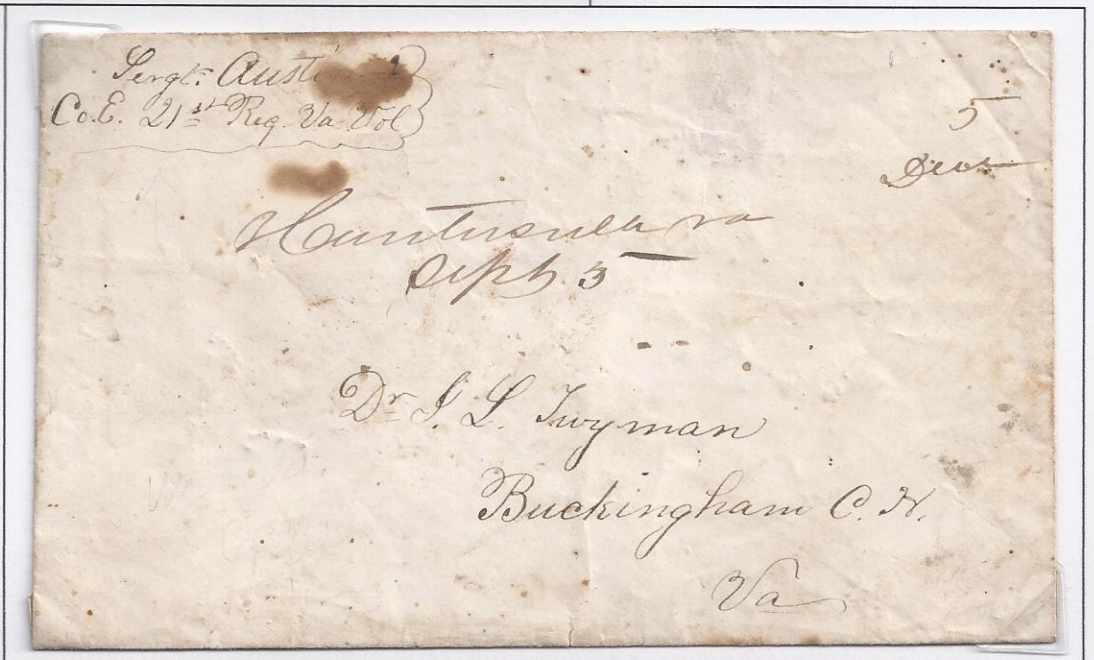 Sergt. Aust
Co. E. 21st Reg. Va Vol
5
Due
Huntersvlla va
Sept 5
Dr. I. L. Twyman
Buckingham C. H.
Va